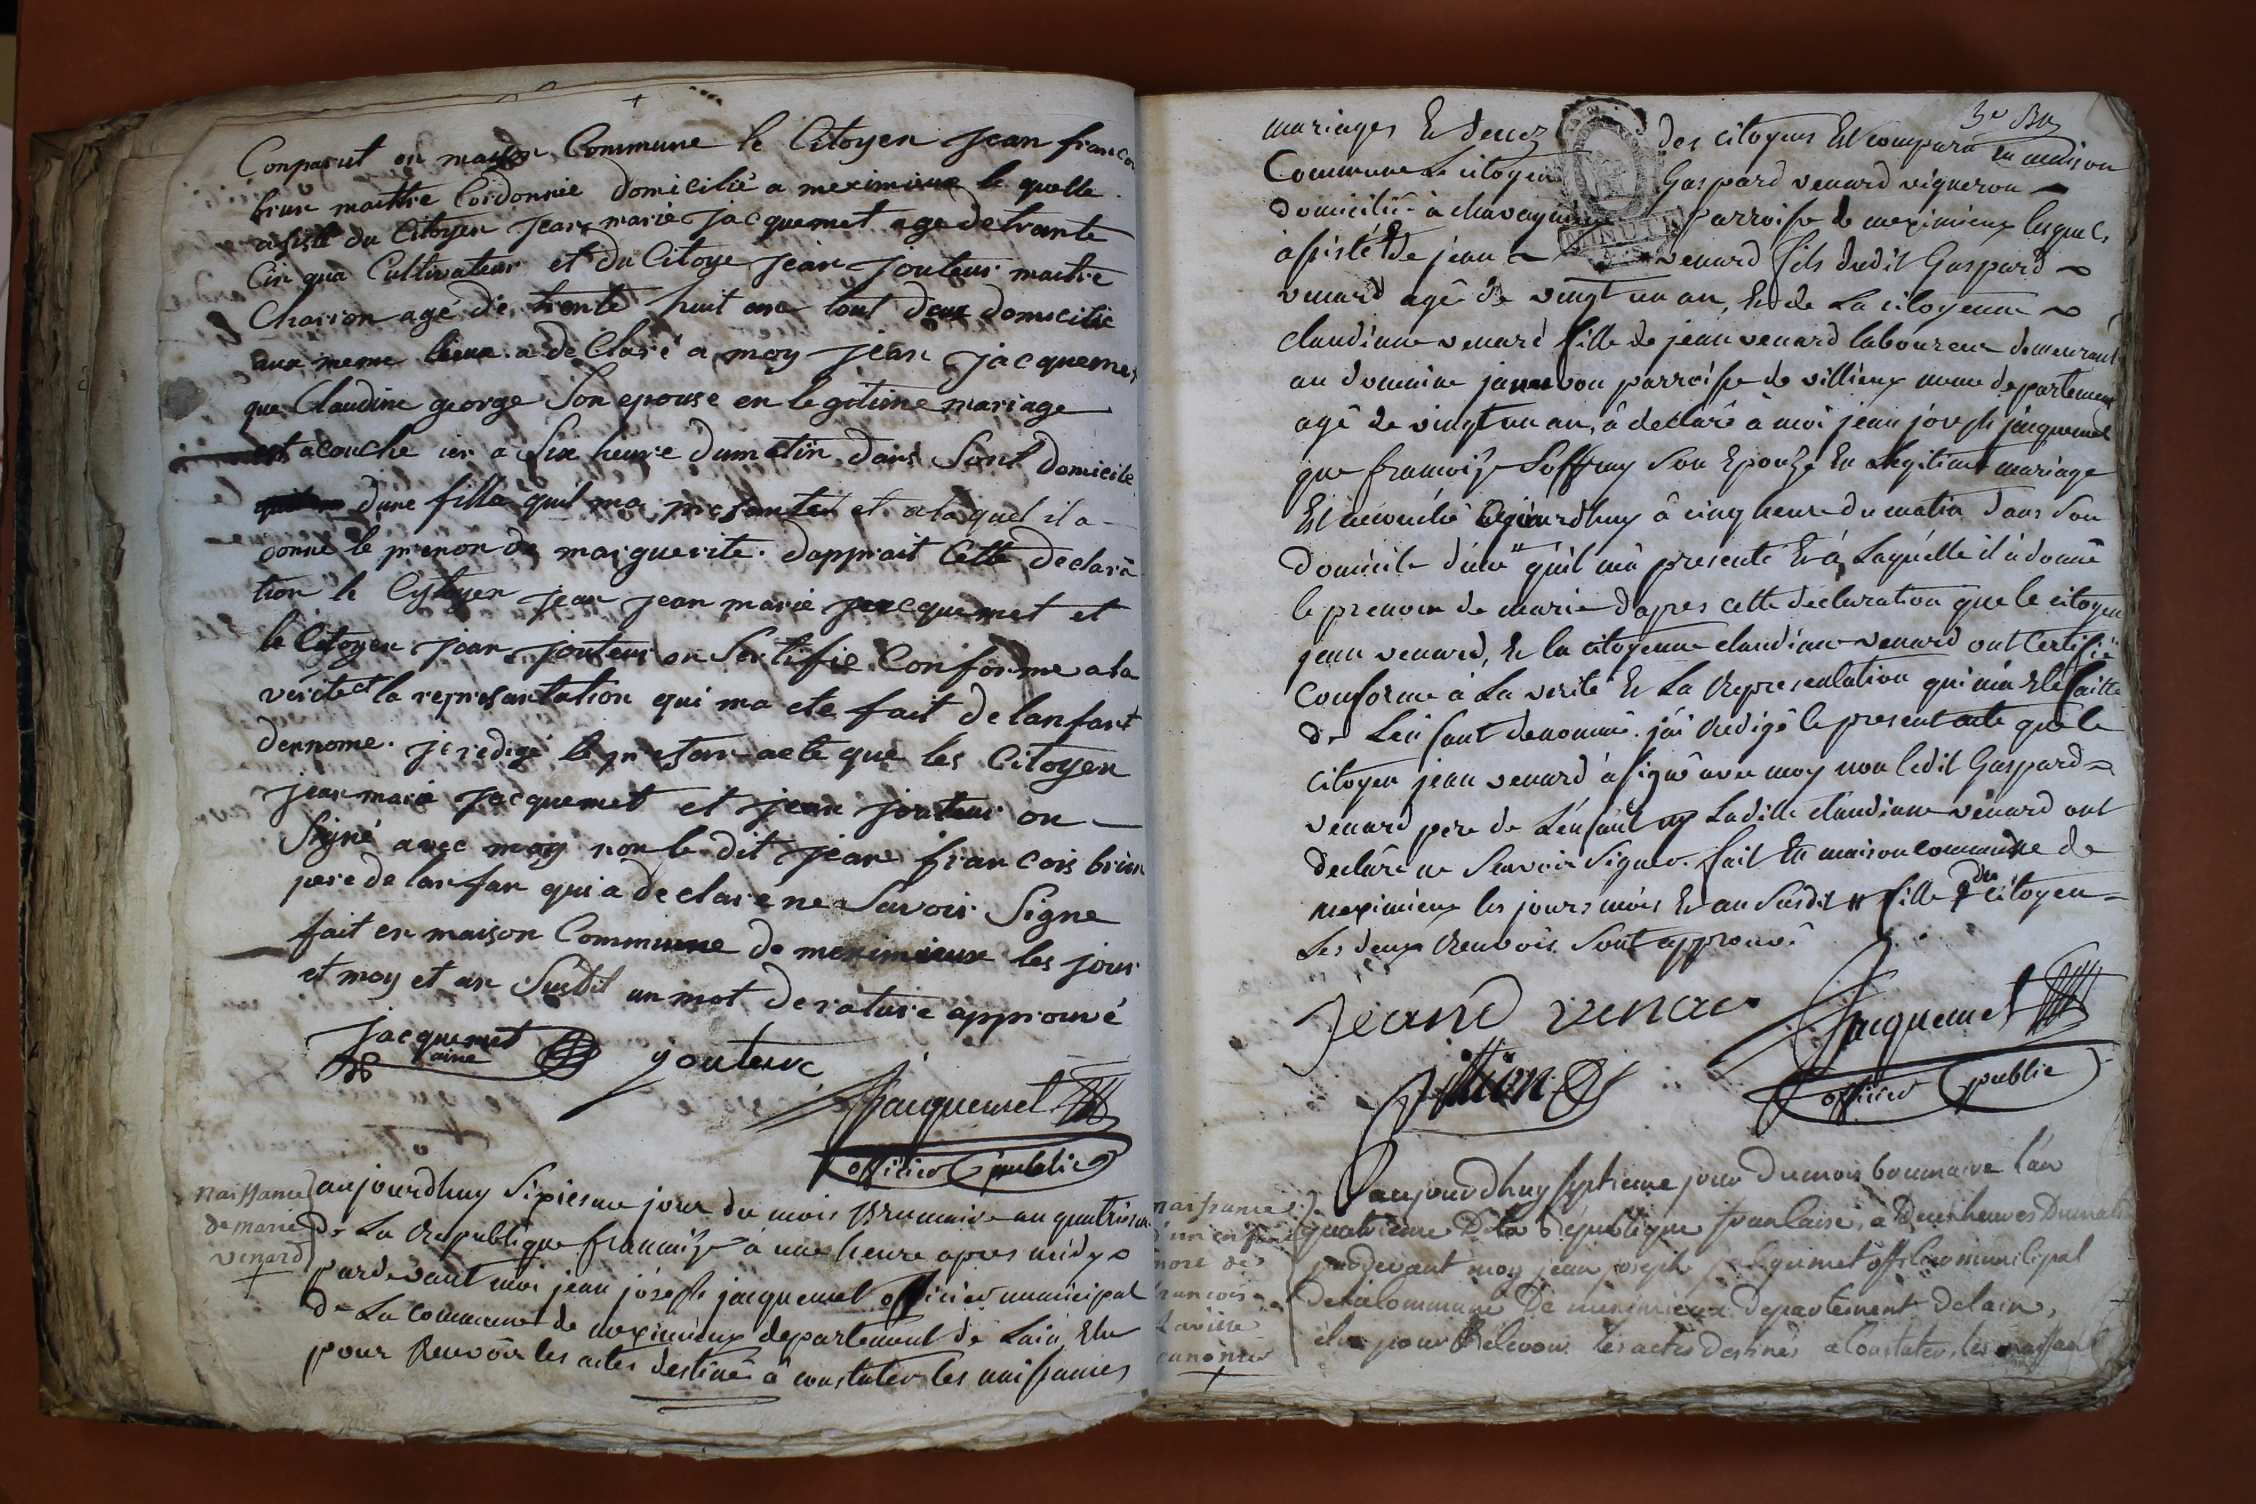 Conparut en maison Commune le Citoyen jean francoi
brun maitre Cordonnie domicilié a meximieux le quelle
asisté du Citoyen jean marie jacquemet age de trante
Cin qua Cultivateur et du Citoye jean jouteur maitre
Charron agé de trente huit ans tout deux domicilie
aux meme lieux a de Claré a moy jean jacquemet
que Claudine george Son epouse en legotime mariage
est acouche ier a Six heure du matin dans Sont domicile
dune fille quil ma presanter et a laquel il a
donné le prenon de marguerite. dapprait Cette declara
tion le Cytoyen jean jean marie jacquemet et
le Citoyen jean jouteur on Sertifie Conforme a la
vérité et la represantation qui ma ete fait de lanfant
dennome. je redigé le presan acte que les Citoyen
jean marie jacquemet et jean jouteur on
Signé avec moy non le dit jean francois brun
pere de lanfan qui a de claré ne Savoir Signe
fait en maison Commune de meximieux les jour
et moy et an Susdit un mot de rature approuvé
jacquemet
ainé
jouteur
Jacquemet
officier public
Naissance
de marie
venard
aujourdhuy Sixiesme jour du mois Brumaire an quatrieme
de La Republique francaize à une heure apres midy
pardevant moi jean joseph jacquemet officier municipal
de La commune de meximieux departement de Lain Elu
pour Recevoir les actes destiné à constater les naissances
mariages Et decez des citoyens Est comparu en maison
Commune Le citoyen Gaspard venard vigneron
domicilié à chavagn parroisse de meximieux lesquels
assisté de jean venard fils dudit Gaspard
venard agé de vingt un an, Et de La citoyenne
claudiane venard fille de jean venard laboureur demeurant
au domaine parroisse de villieux meme departement
agé de vingt un an, à declaré à moi jean joseph jacquemet
que francoize Soffray Son Epouze En Legitime mariage
Est accouché aujourdhuy à cinq heure du matin dans Son
domicile d'une quil m'à presenté Et à Laquelle il à donné
le prenom de marie d'apres cette declaration que le citoyen
jean venard, Et la citoyenne claudiane venard ont Certifié
Conforme à La verité Et La Representation qui m'a été faitte
de Lenfant denommé. j'ai Redigé le present acte que le
citoyen jean venard à signé avec moy non ledit Gaspard
venard pere de Lénfant ny Ladille claudiane venard ont
declaré ne Scavoir Signer. fait En maison commune de
meximieux les jours mois Et an Susdit fille du citoyen
Les deux Renvois Sont approuvé
jeand venar
Jacquemet
officier public
naissance
d'un enfant
mort de
francois
aujourdhuy septieme jour du mois brumaire l'an
quatrieme De la République francaise, a deux heures Dumatin
pardevant moy jean joseph jacquemet officier municipal
de la Commune De meximieux departement delain,
élu pour Recevoir les actes destinés a Constater, les naissanc